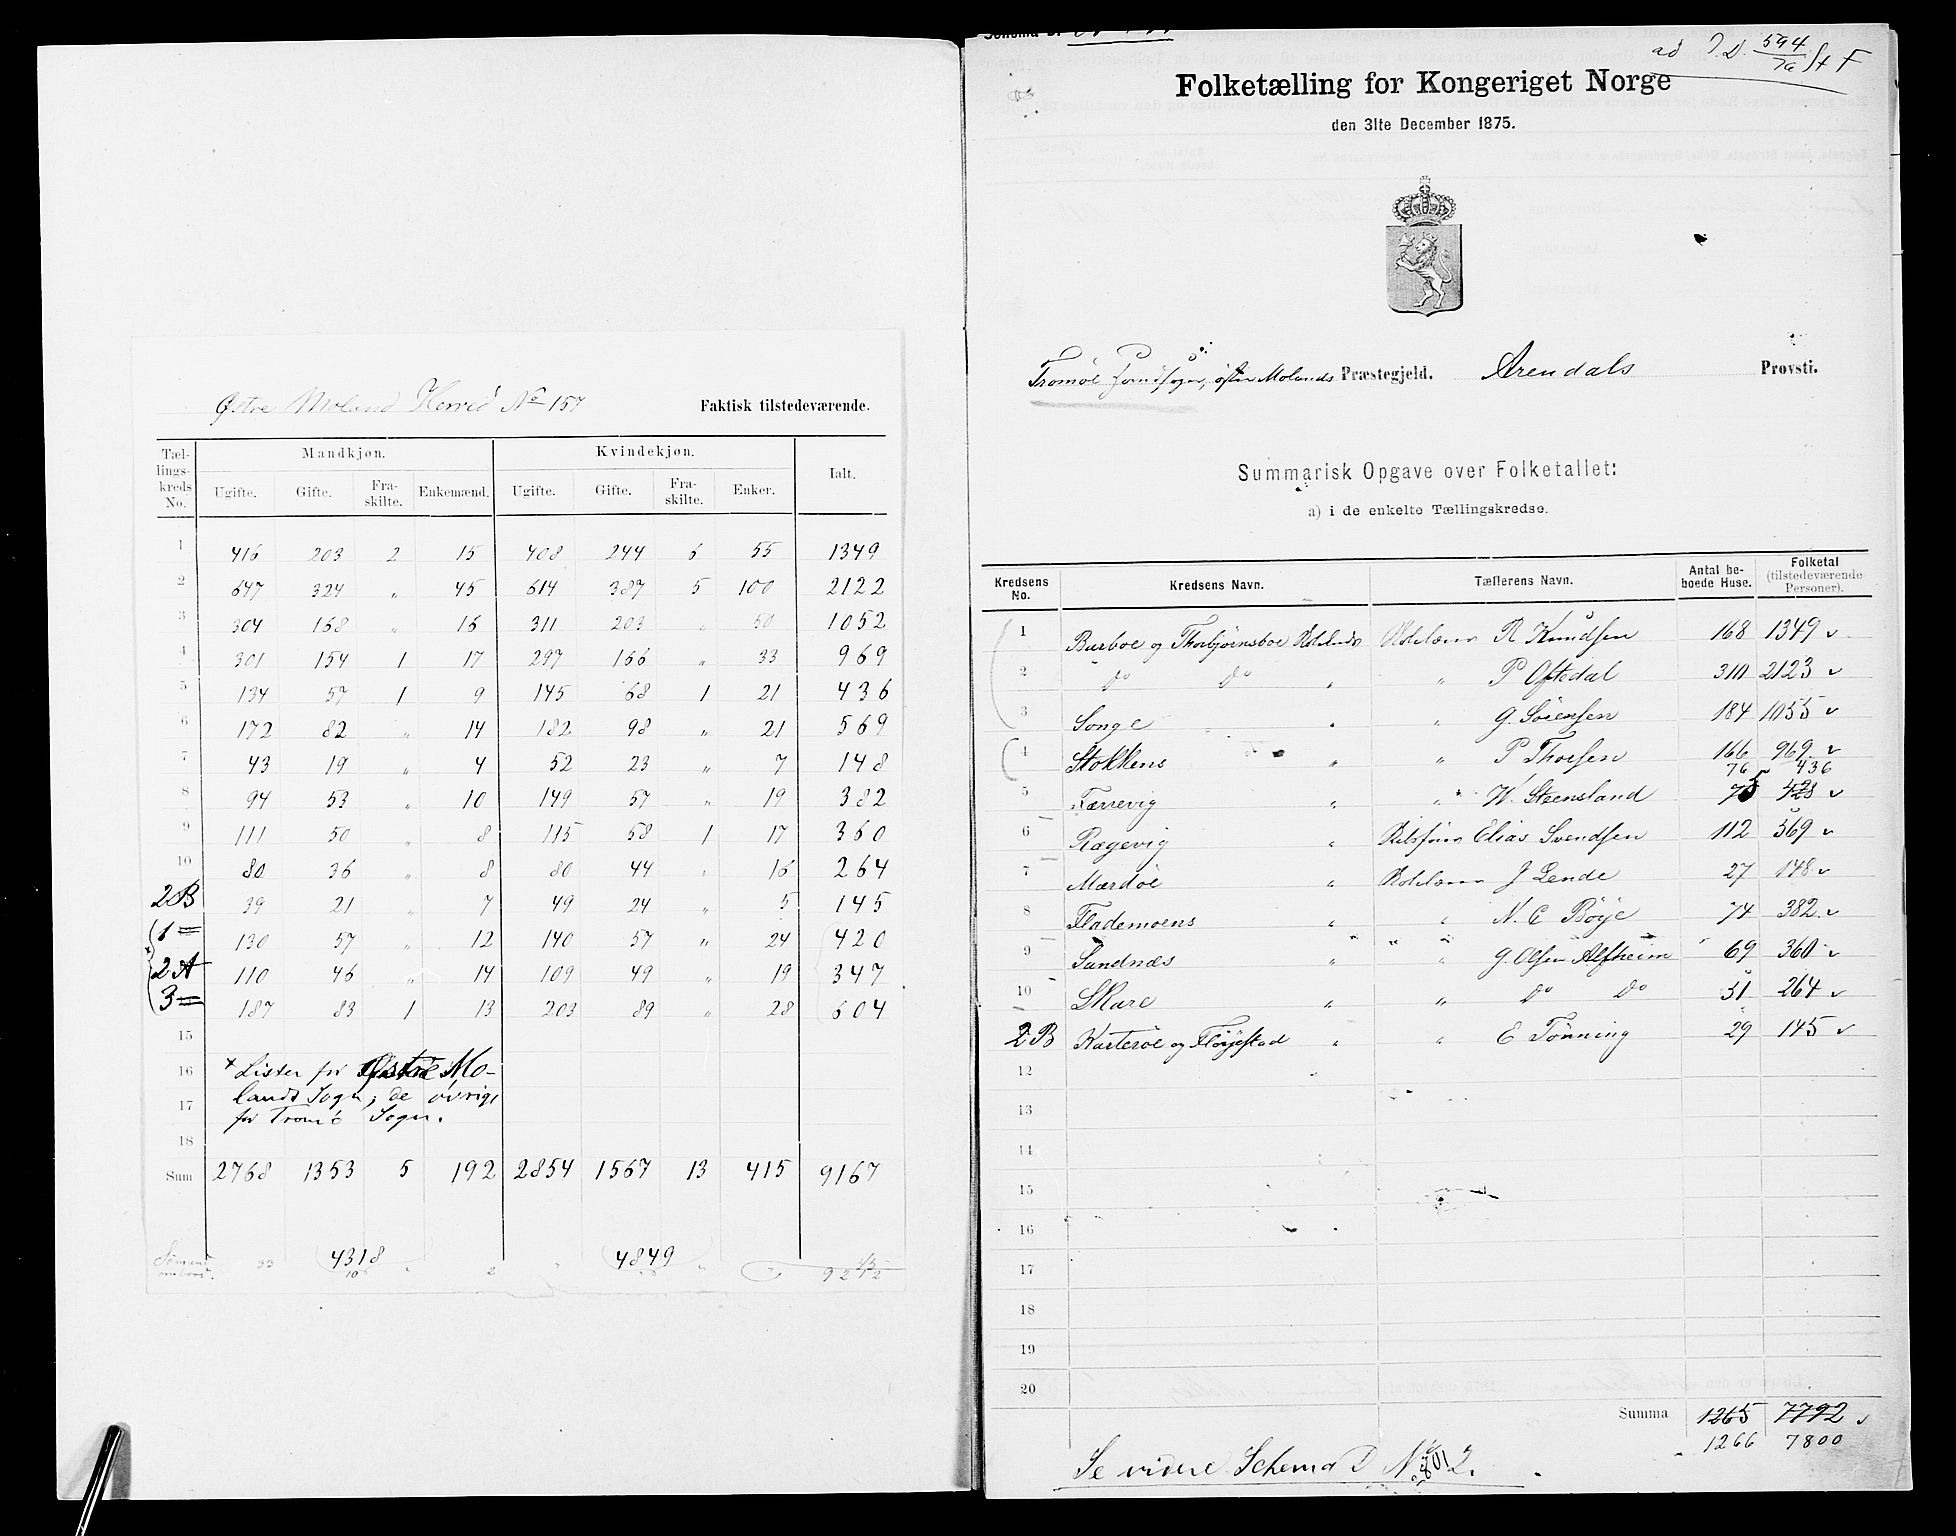 Østre Moland Herred No 157 Faktisk tilstedeværende.
Tællingskreds No. Mandkjøn. Kvindekjøn. Ialt.
Ugifte. Gifte. Fraskilte. Enkemænd. Ugifte. Gifte. Fraskilte. Enker.
1 416 203 2 15 408 244 6 55 1349
2 647 324 „ 45 614 387 5 100 2122
3 304 168 „ 16 311 203 „ 50 1052
4 301 154 1 17 297 166 „ 33 969
5 134 57 1 9 145 68 1 21 436
6 172 82 „ 14 182 98 „ 21 569
7 43 19 „ 4 52 23 „ 7 148
8 94 53 „ 10 149 57 „ 19 382
9 111 50 „ 8 115 58 1 17 360
10 80 36 „ 8 80 44 „ 16 264
2B 39 21 „ 7 49 24 „ 5 145
1 = 130 57 „ 12 140 57 „ 24 420
2A 110 46 „ 14 109 49 „ 19 347
3 = 187 83 1 13 203 89 „ 28 604
15
16 × Lister for Østre Mo-
17 lands Sogn; de øvrige
for Tromö Sogn.
18
Sum 2768 1353 5 192 2854 1567 13 415 9167
4318 4849
Sømænd ombord. 33 10 „ 2 „ „
ad J.D. 594/76 St F
Folketælling for Kongeriget Norge
den 31te December 1875.
Tromöe Præstegjeld. Arendals Provsti.
Summarisk Opgave over Folketallet:
a) i de enkelte Tællingskredse.
Kredsens No. Kredsens Navn. Tællerens Navn. Antal beboede Huse. Folketal (tilstedeværende Personer).
1 Barboe og Thorbjørnsboe R Knudsen 168 1349 ✓
2 Do Do „ „ P Oftedal 310 2123 ✓
3 Songe „ „ G. Sörensen 184 1055 ✓
4 Stokkens „ „ P Thorsen 166 969 ✓
76 436
5 Færrevig „ „ W. Steensland 75 428 ✓
6 Rægevig „ Elias Svendsen 112 569 ✓
7 Mærdöe „ J Lende 27 148 ✓
8 Flademoens „ „ N. C Böye 74 382 ✓
9 Sandnæs „ „ G. Olsen Alfheim 69 360 ✓
10 Skare „ „ Do Do 51 264 ✓
2B Kartevöe og Flöyestad „ „ E Tönning 29 145 ✓
12
13
14
15
16
17
18
19
20
Summa 1265 7792 ✓
1266 7800
Se videre Schema D No 2.